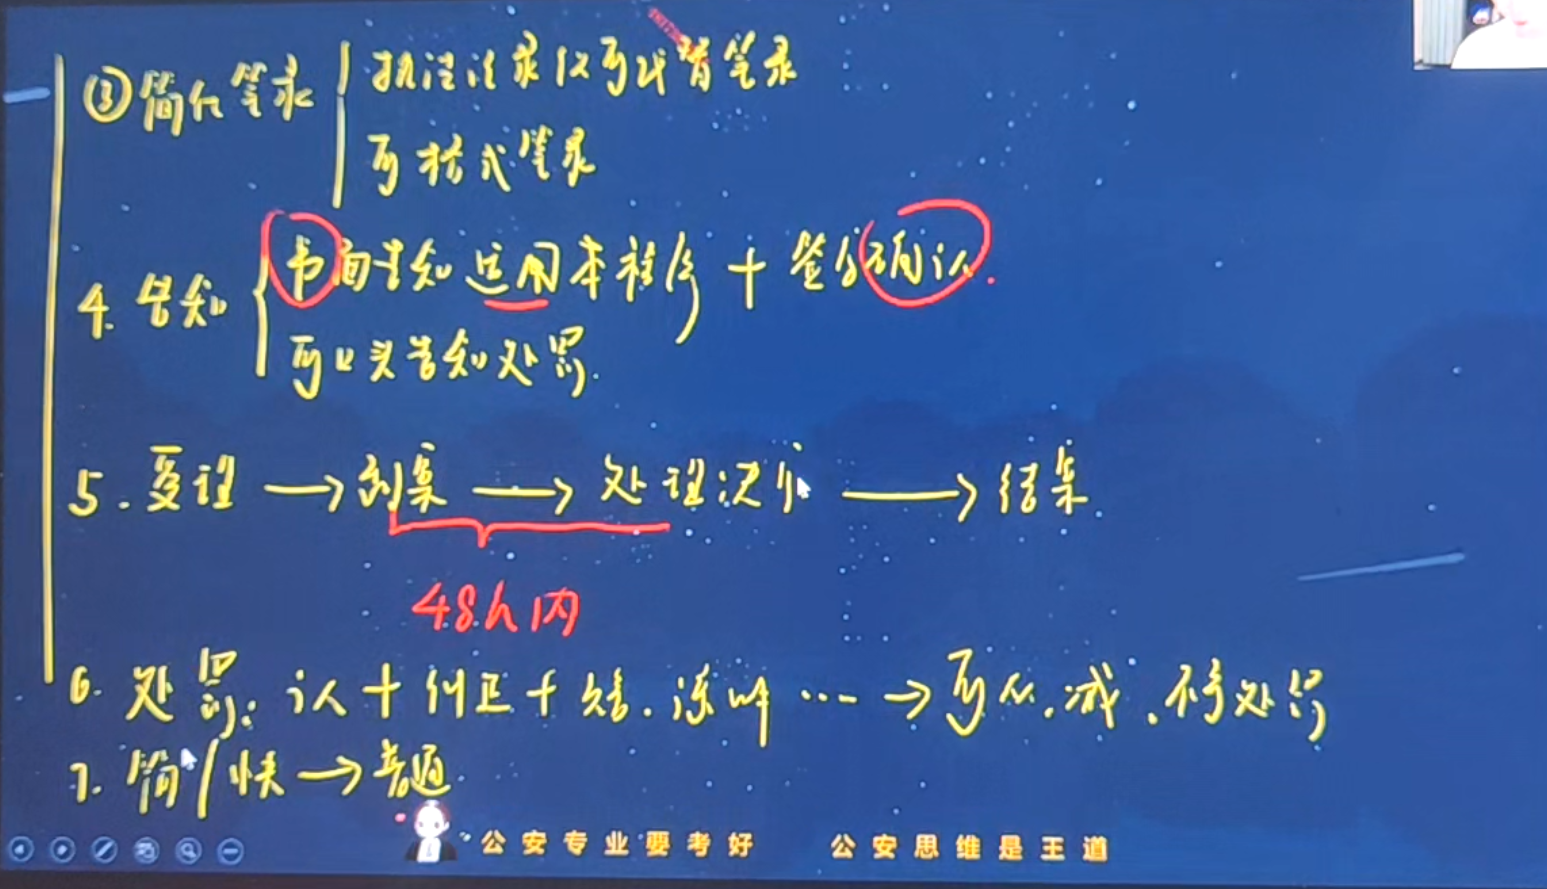 ③简化笔录 执法记录仪可代替笔录
可格式笔录
4. 告知 书面告知适用本程序 + 签名确认.
可口头告知处罚.
5. 受理 → 到案 → 处理决定 → 结案.
48h内
6. 处罚: 认 + 纠正 + 赔.谅解 … → 可从.减.不予处罚
7. 简/快 → 普通.
公安专业要考好 公安思维是王道